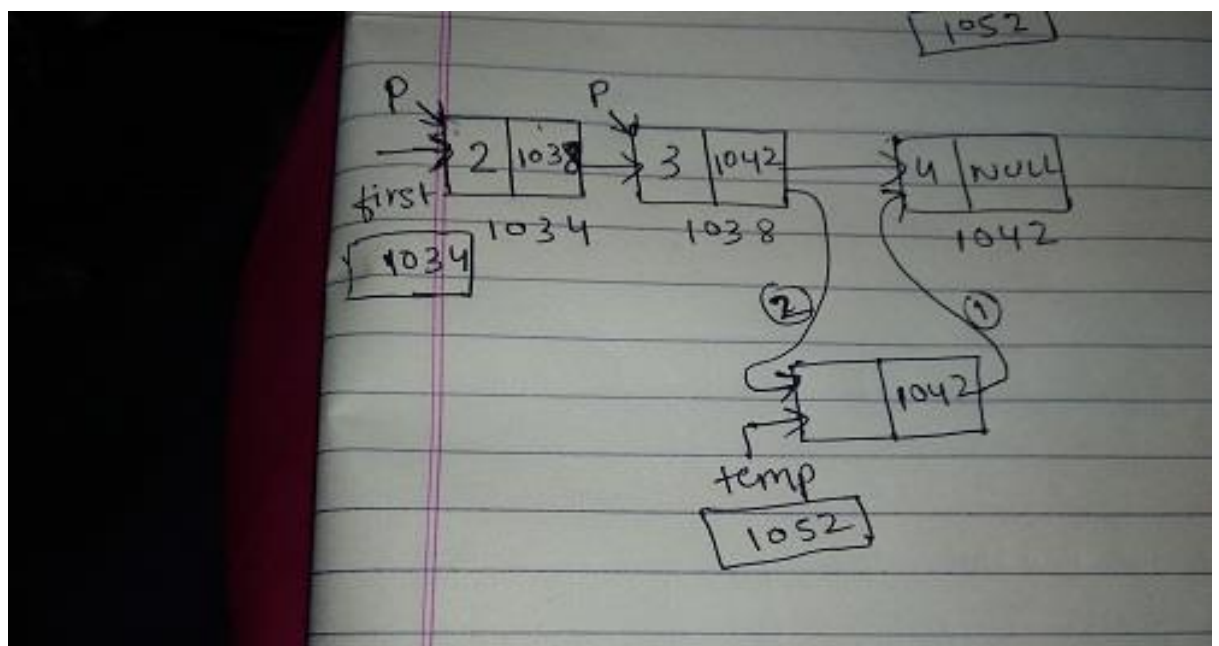 1052
P P
2 1038 3 1042 4 NULL
first
1034 1038 1042
1034
2 1
1042
temp
1052